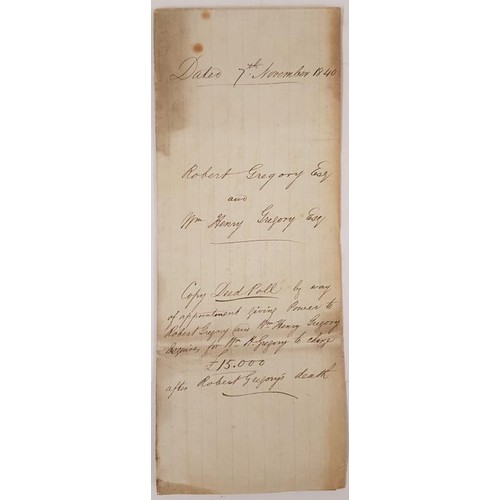 Dated 7th November 1840
Robert Gregory Esq
and
Wm Henry Gregory Esq
Copy Deed Poll by way
of appointment giving Power to
Robert Gregory and Wm Henry Gregory
Esquires for Wm H. Gregory to charge
£15.000
after Robert Gregory's death